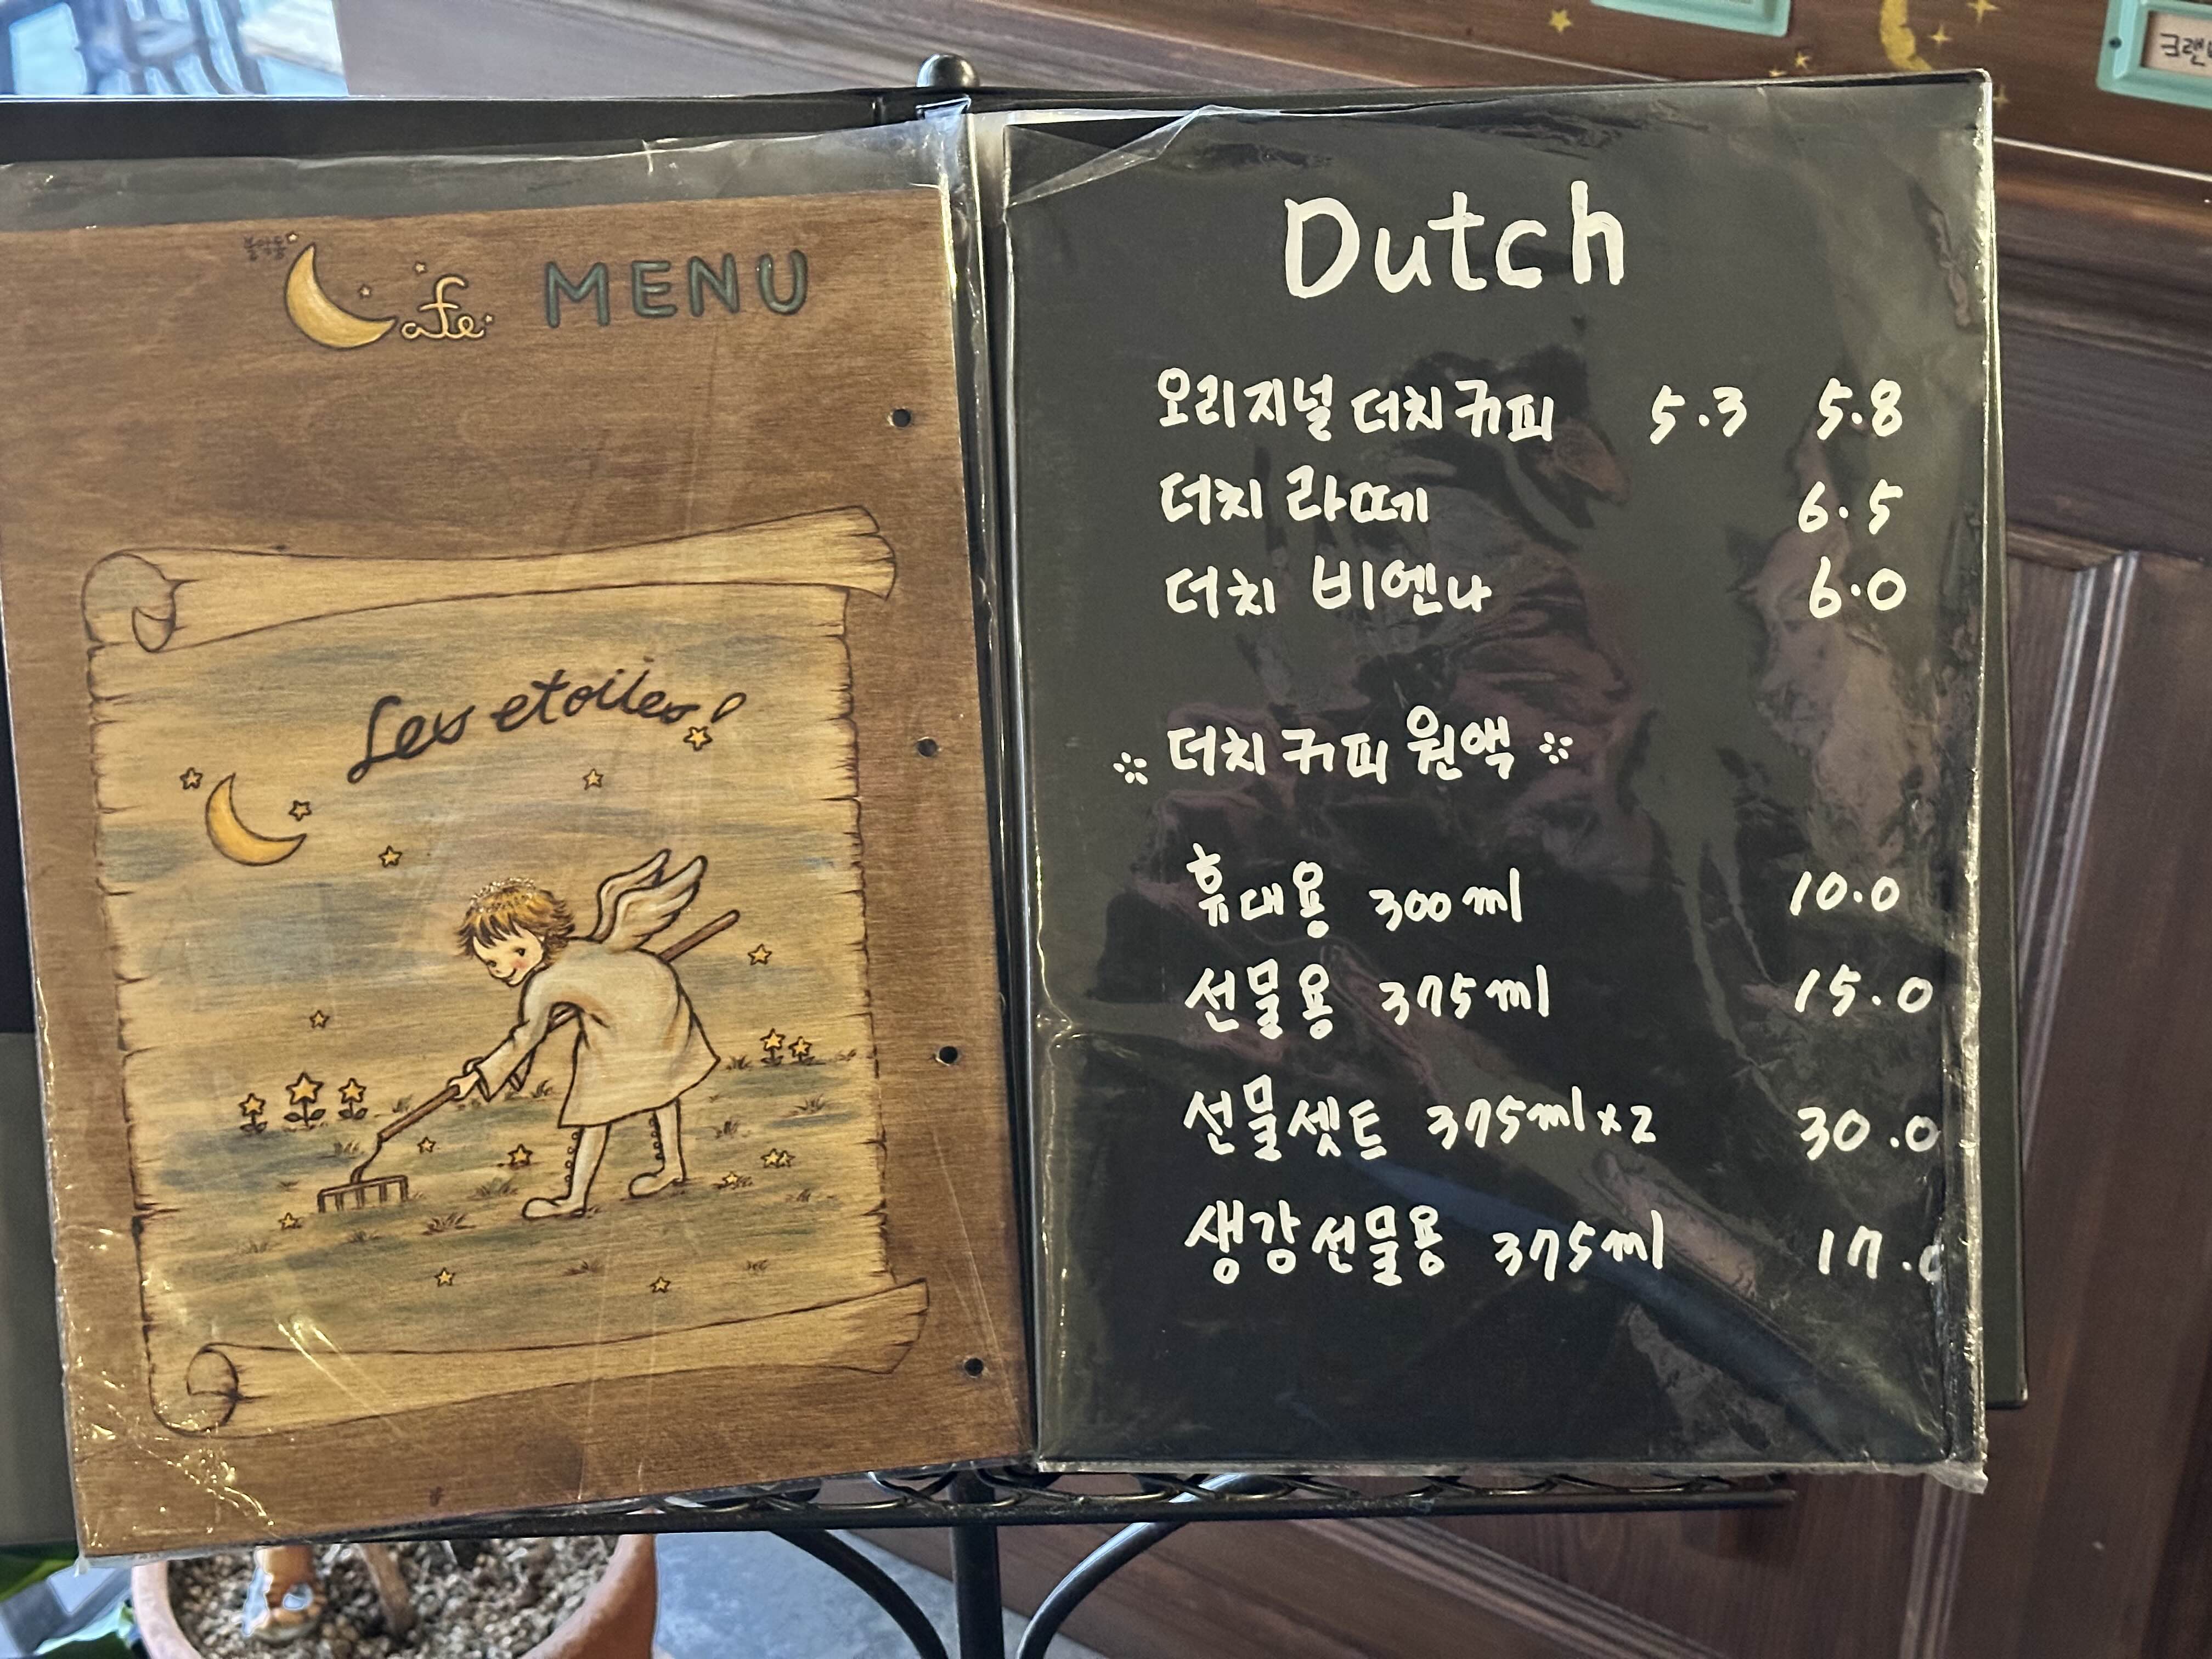 Cafe MENU
Les etoiles!
Dutch
오리지널 더치커피 5.3 5.8
더치 라떼 6.5
더치 비엔나 6.0
더치커피 원액
휴대용 300ml 10.0
선물용 375ml 15.0
선물셋트 375ml x2 30.0
생강선물용 375ml 17.0